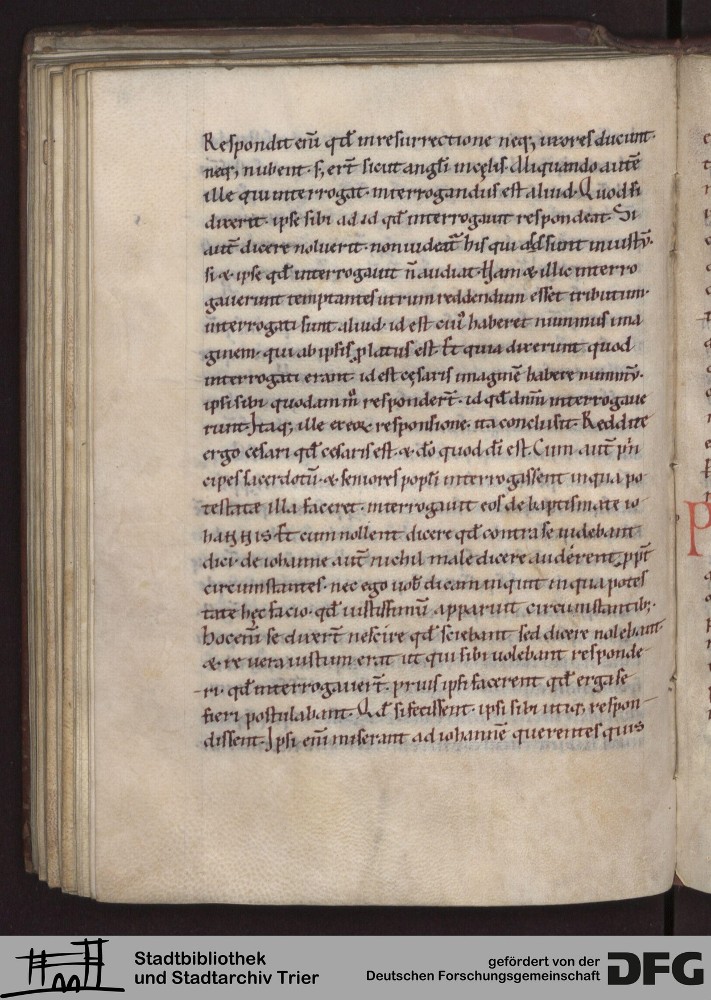 Respondit eni̅ qd̅ in resurrectione neq; uxores ducunt·
neq; nubent· s; ert̅ sicut angl̅i in cęlis· Aliquando aute̅
ille qui interrogat· interrogandus est aliud· Quod si
dixerit· ipse sibi ad id qd̅ interrogauit respondeat· Si
aut̅ dicere noluerit· non uidea̅t his qui assunt iniustu̅·
si & ipse qd̅ interrogauit n̅ audiat· Nam & illic interro
gauerunt temptantes utrum reddendum esset tributum·
interrogati sunt aliud· id est cuiᷤ haberet nummus ima
ginem· qui ab ipsis ꝓlatus est· Et quia dixerunt quod
interrogati erant· id est cęsaris imagine̅ habere nummu̅·
ipsi sibi quodam m̊ respondert̅· id qd̅ dn̅m interrogaue
runt· Itaq; ille ex eoꝝ responsione· ita conclusit· Reddite
ergo cesari qd̅ cesaris est· & do̅ quod di̅ est· Cum aut̅ p̍n
cipes sacerdotu̅· & seniores popl̅i interrogassent in qua po
testate illa faceret· interrogauit eos de baptismate io
hannis· Et cum nollent dicere qd̅ contra se uidebant
dici· de iohanne aut̅ nichil male dicere auderent· ꝓpt̅
circumstantes· nec ego uob̅ dicam inquit in qua potes
tate hęc facio· qd̅ iustissimu̅ apparuit circumstantib;·
Hoc eni̅ se dixert̅ nescire qd̅ sciebant sed dicere nolebant·
& re uera iustum erat ut qui sibi uolebant responde
ri· qd̅ interrogauert̅· prius ipsi facerent qd̅ erga se
fieri postulabant· Qd̅ si fecissent· ipsi sibi utiq; respon
dissent· Ipsi eni̅ miserant ad iohanne̅ querentes quis
Stadtbibliothek
und Stadtarchiv Trier
gefördert von der
Deutschen Forschungsgemeinschaft
DFG